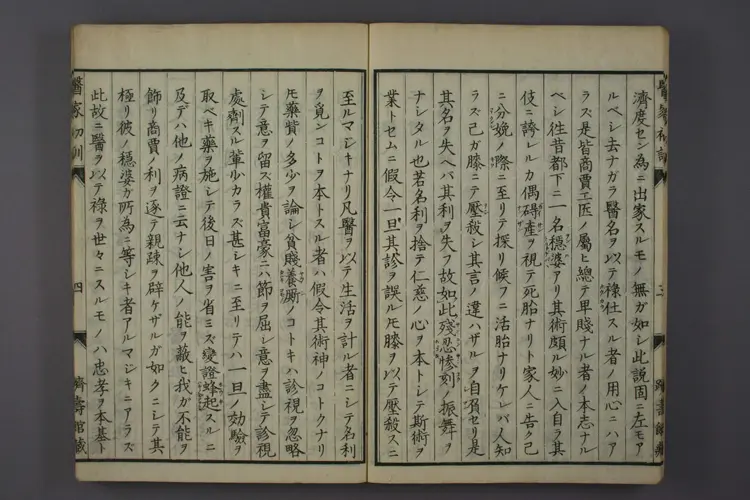 濟度セン為ニ出家スルモノ無ガ如シ此説固ニ左モア
ルベシ去ナガラ醫名ヲ以テ祿仕スル者ノ用心ニハア
ラズ是皆商賈工匠ノ屬ヒ總テ卑賤ナル者ノ本志ナル
ベシ往昔都下ニ一名穩婆アリ其術頗ル妙ニ入自ラ其
伎ニ誇レルカ偶碍產ヲ視テ死胎ナリト家人ニ告ク己
ニ分娩ノ際ニ至リテ探リ候フニ活胎ナリケレバ人知
ラズ己ガ膝ニテ壓殺シ其言ノ違ハザルヲ自負セリ是
其名ヲ失ヘバ其利ヲ失フ故如此殘忍慘刻ノ振舞ヲ
ナシタル也若名利ヲ捨テ仁慈ノ心ヲ本トシテ斯術ヲ
業トセムニ假令一旦其診ヲ誤ルモ膝ヲ以テ壓殺スニ
三
至ルマジキナリ凡醫ヲ以テ生活ヲ計ル者ニシテ名利
ヲ覓ンコトヲ本トスル者ハ假令其術神ノコトクナリ
モ藥貲ノ多少ヲ論シ貧賤養厮ノコトキハ診視ヲ忽略
シテ意ヲ留ズ權貴富豪ニハ節ヲ屈シ意ヲ盡シテ診視
處劑スル輩少カラズ甚シキニ至リテハ一旦ノ効驗ヲ
取ベキ藥ヲ施シテ後日ノ害ヲ省ミズ變證蜂起スルニ
及デハ他ノ病證ニ云ナシ他人ノ能ヲ蔽ヒ我ガ不能ヲ
飾リ商賈ノ利ヲ逐テ親疎ヲ辟ケザルガ如クニシテ其
極リ彼ノ穩婆ガ所為ニ等シキ者アルマジキニアラズ
此故ニ醫ヲ以テ祿ヲ世々ニスルモノハ忠孝ヲ本基ト
醫家初訓
四
躋壽館藏